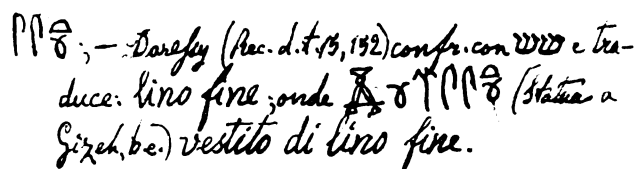 ; — Daressy (Rec. d. t. 13, 152) confr. con שש e tra-
duce: lino fine; onde (Statua a
Gizeh, b.e.) vestito di lino fine.